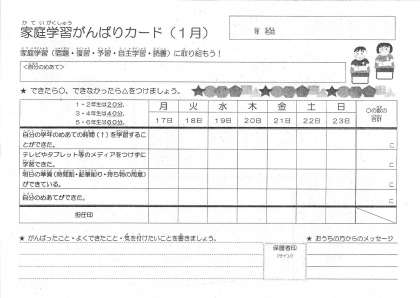 かていがくしゅう
家庭学習がんばりカード（1月）
年 組
家庭学習（宿題・復習・予習・自主学習・読書）に取り組もう！
<自分のめあて>
★ できたら○、できなかったら△をつけましょう。
1・2年生は20分、
3・4年生は40分、
5・6年生は60分、
月 火 水 木 金 土 日
17日 18日 19日 20日 21日 22日 23日
○の数の
合計
自分の学年のめあての時間（↑）を学習するこ
とができた。
こ
テレビやタブレット等のメディアをつけずに
学習できた。
こ
明日の準備（時間割・鉛筆削り・持ち物の用意）
ができている。
こ
自分のめあてができた。
こ
担任印
★ がんばったこと・よくできたこと・気を付けたいことを書きましょう。
保護者印
（サイン）
★ おうちの方からのメッセージ